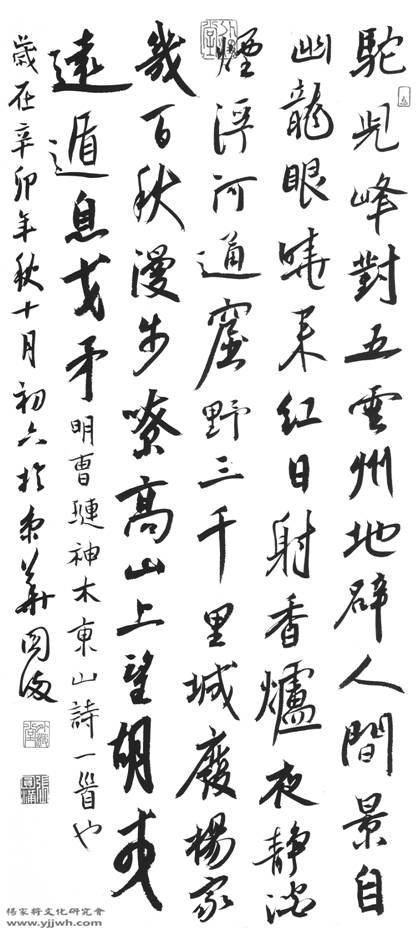 駝兒峰對五雲州地辟人間景自
幽龍眼曉來紅日射香爐夜靜淡
煙浮河通窟野三千里城廢楊家
幾百秋漫步嘹高山上望胡戎
遠遁息戈矛明曹璉神木東山詩一首也
歲在辛卯年秋十月初六於京華
楊家將文化研究會
www.yjjwh.com